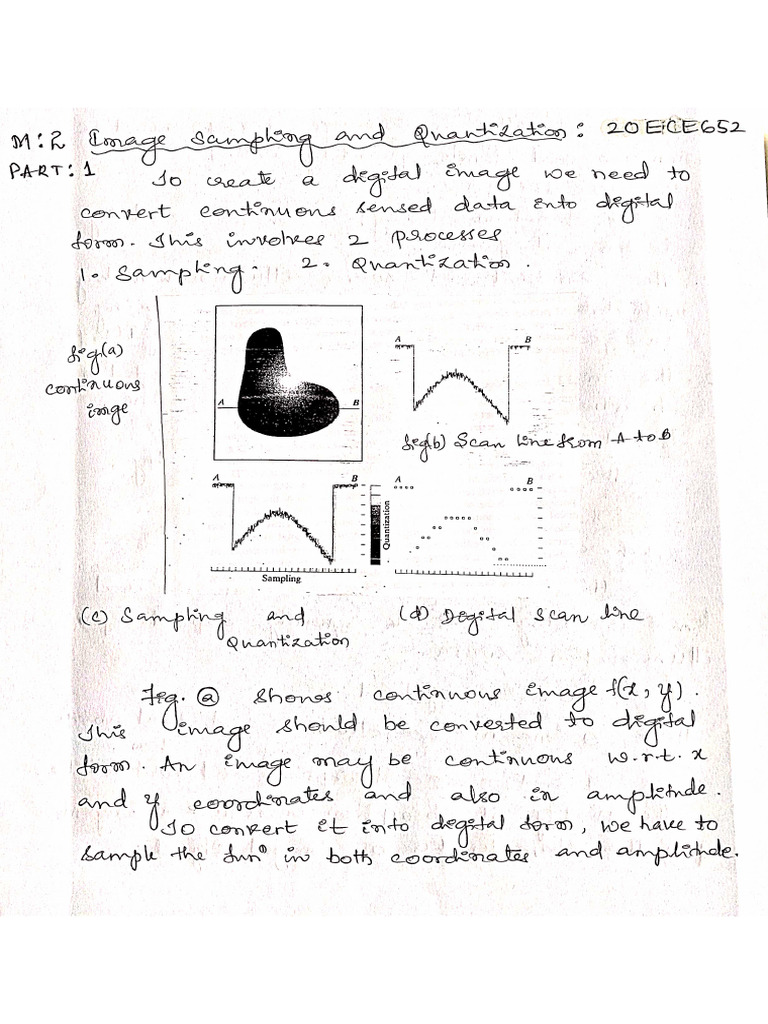 M:2 Image Sampling and Quantization: 20ECE652
PART:1 To create a digital image we need to
convert continuous sensed data into digital
form. This involves 2 processes
1. Sampling. 2. Quantization.
fig(a)
continuous
imge
A B
A B
fig(b) Scan line from A to B
A B
Quantization
Sampling
A B
(c) Sampling and
Quantization
(d) Digital Scan line
Fig. (a) shows continuous image f(x, y).
This image should be converted to digital
form. An image may be continuous w.r.t. x
and y coordinates and also in amplitude.
To convert it into digital form, we have to
sample the funⁿ in both coordinates and amplitude.